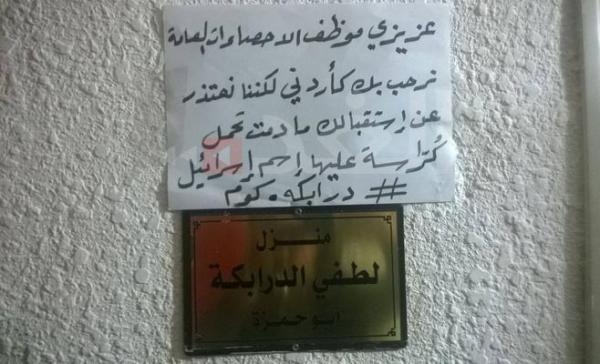 عزيزي موظف الاحصاءات العامة
نرحب بك كأردني لكننا نعتذر
عن إستقبالك ما دمت تحمل
كُرّاسة عليها إسم إسرائيل
# درابكه. كوم
منزل
لطفي الدرابكة
ابو حمزة